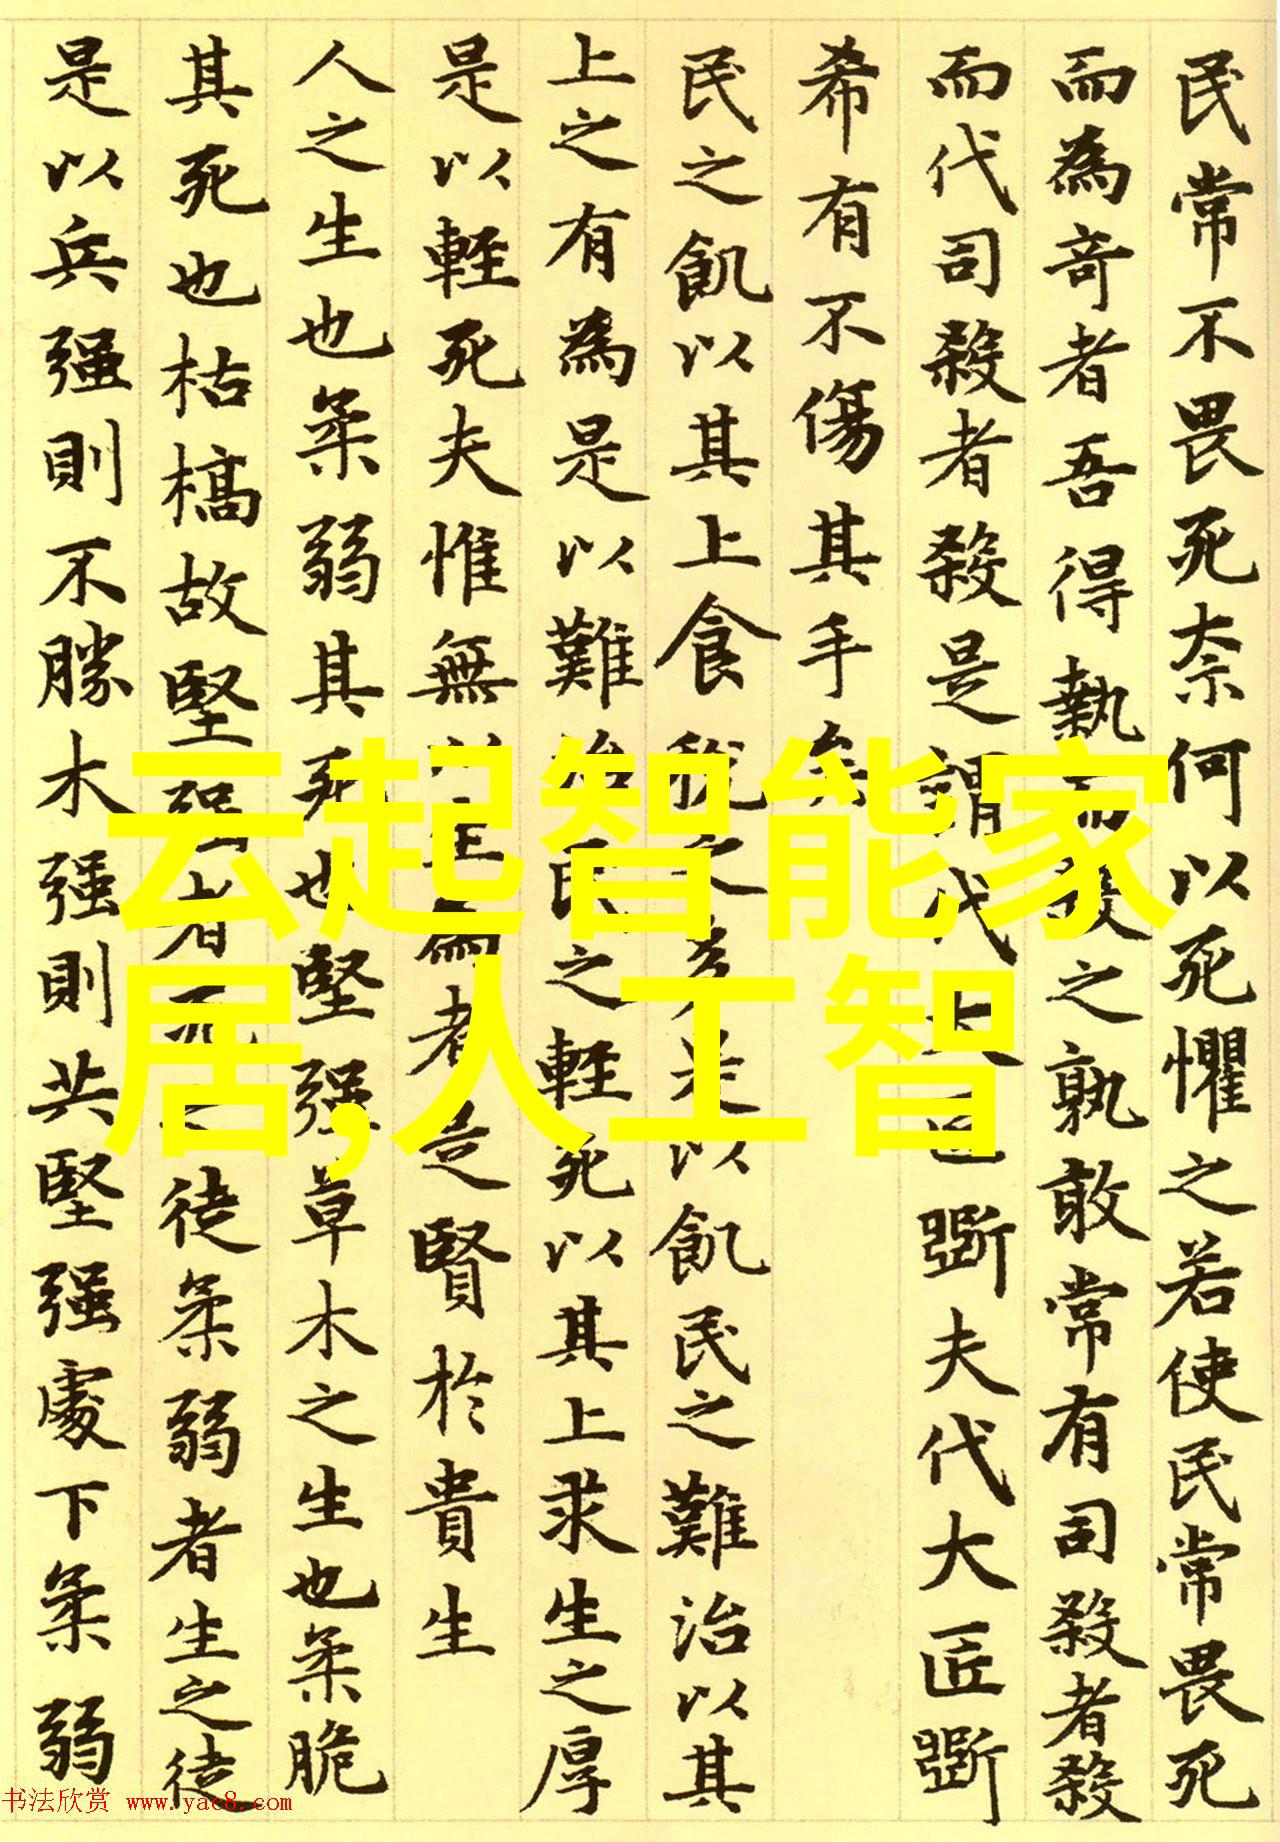 民常不畏死奈何以死懼之若使民常畏死
而為奇者吾得執而殺之孰敢常有司殺者殺
而代司殺者殺是謂代大匠斲夫代大匠斲
希有不傷其手矣
民之飢以其上食稅之多是以飢民之難治以其
上之有為是以難治民之輕死以其上求生之厚
是以輕死夫惟無以生為者是賢於貴生
人之生也柔弱其死也堅强草木之生也柔脆
其死也枯槁故堅强者死之徒柔弱者生之徒
是以兵强則不勝木强則共堅强處下柔弱
云起智能家
居,人工智
书法欣赏 www.yac8.com